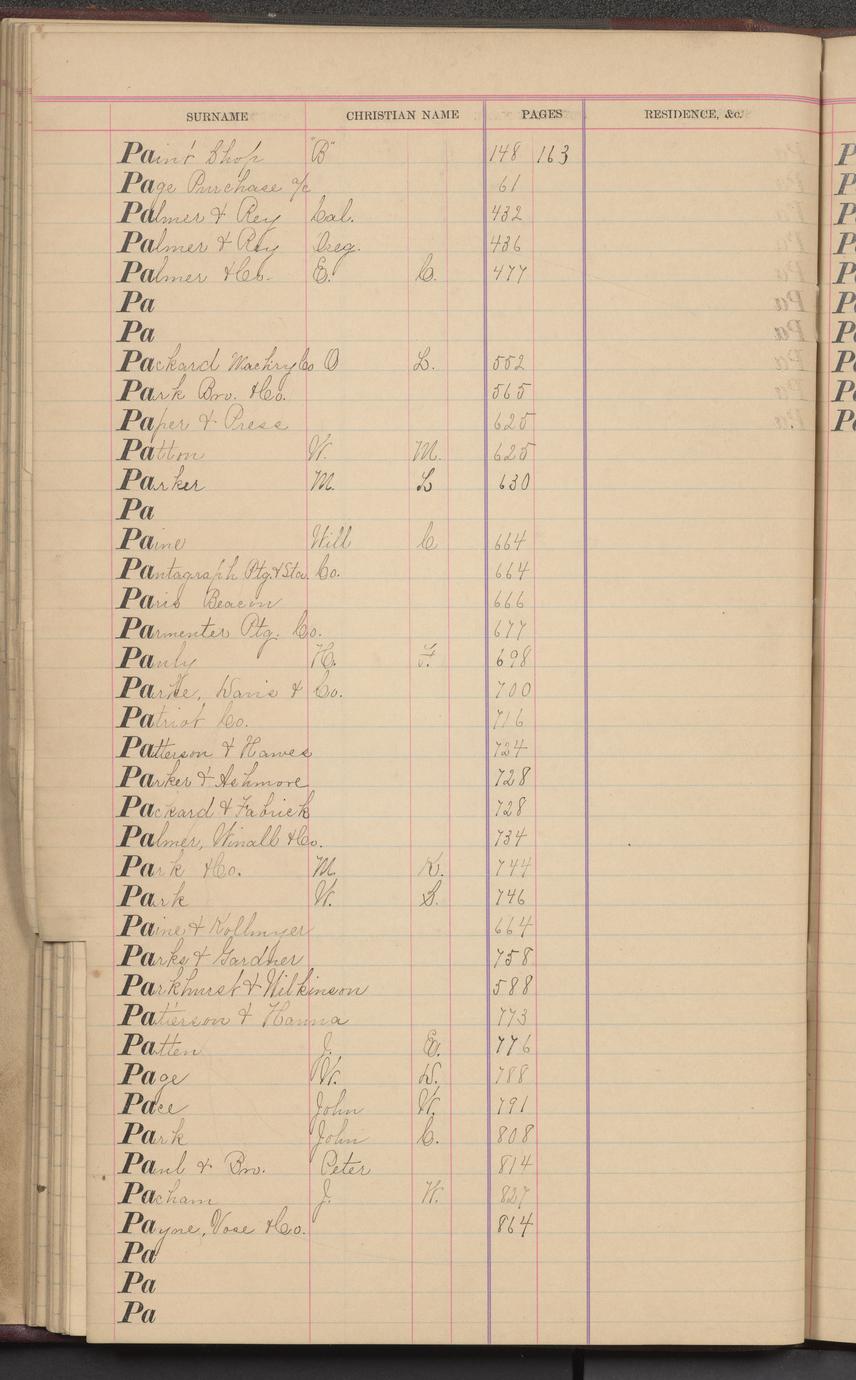 SURNAME CHRISTIAN NAME PAGES RESIDENCE, &c.
Paint Shop "B" 148 163
Page Purchase a/c 61
Palmer & Rey Cal. 432
Palmer & Rey Oreg. 436
Palmer & Co. E. C. 477
Pa
Pa
Packard Machry Co O L. 552
Park Bro. & Co. 565
Paper & Press 625
Patton W. M. 625
Parker M. L 630
Pa
Paine Will C 664
Pantagraph Ptg. & Sta. Co. 664
Paris Beacon 666
Parmenter Ptg. Co. 677
Pauly H. F. 698
Parke, Davis & Co. 700
Patriot Co. 716
Patterson & Hawes 724
Parker & Ashmore 728
Packard & Fabrick 728
Palmer, Winall & Co. 734
Park & Co. M. K. 744
Park W. S. 746
Paine & Kollmyer 664
Parks & Gardner 758
Parkhurst & Wilkinson 588
Patterson & Hanna 773
Patten J. E. 776
Page W. D. 788
Pace John W. 791
Park John C. 808
Paul & Bro. Peter 814
Pacham J. W. 827
Payne, Vose & Co. 864
Pa
Pa
Pa